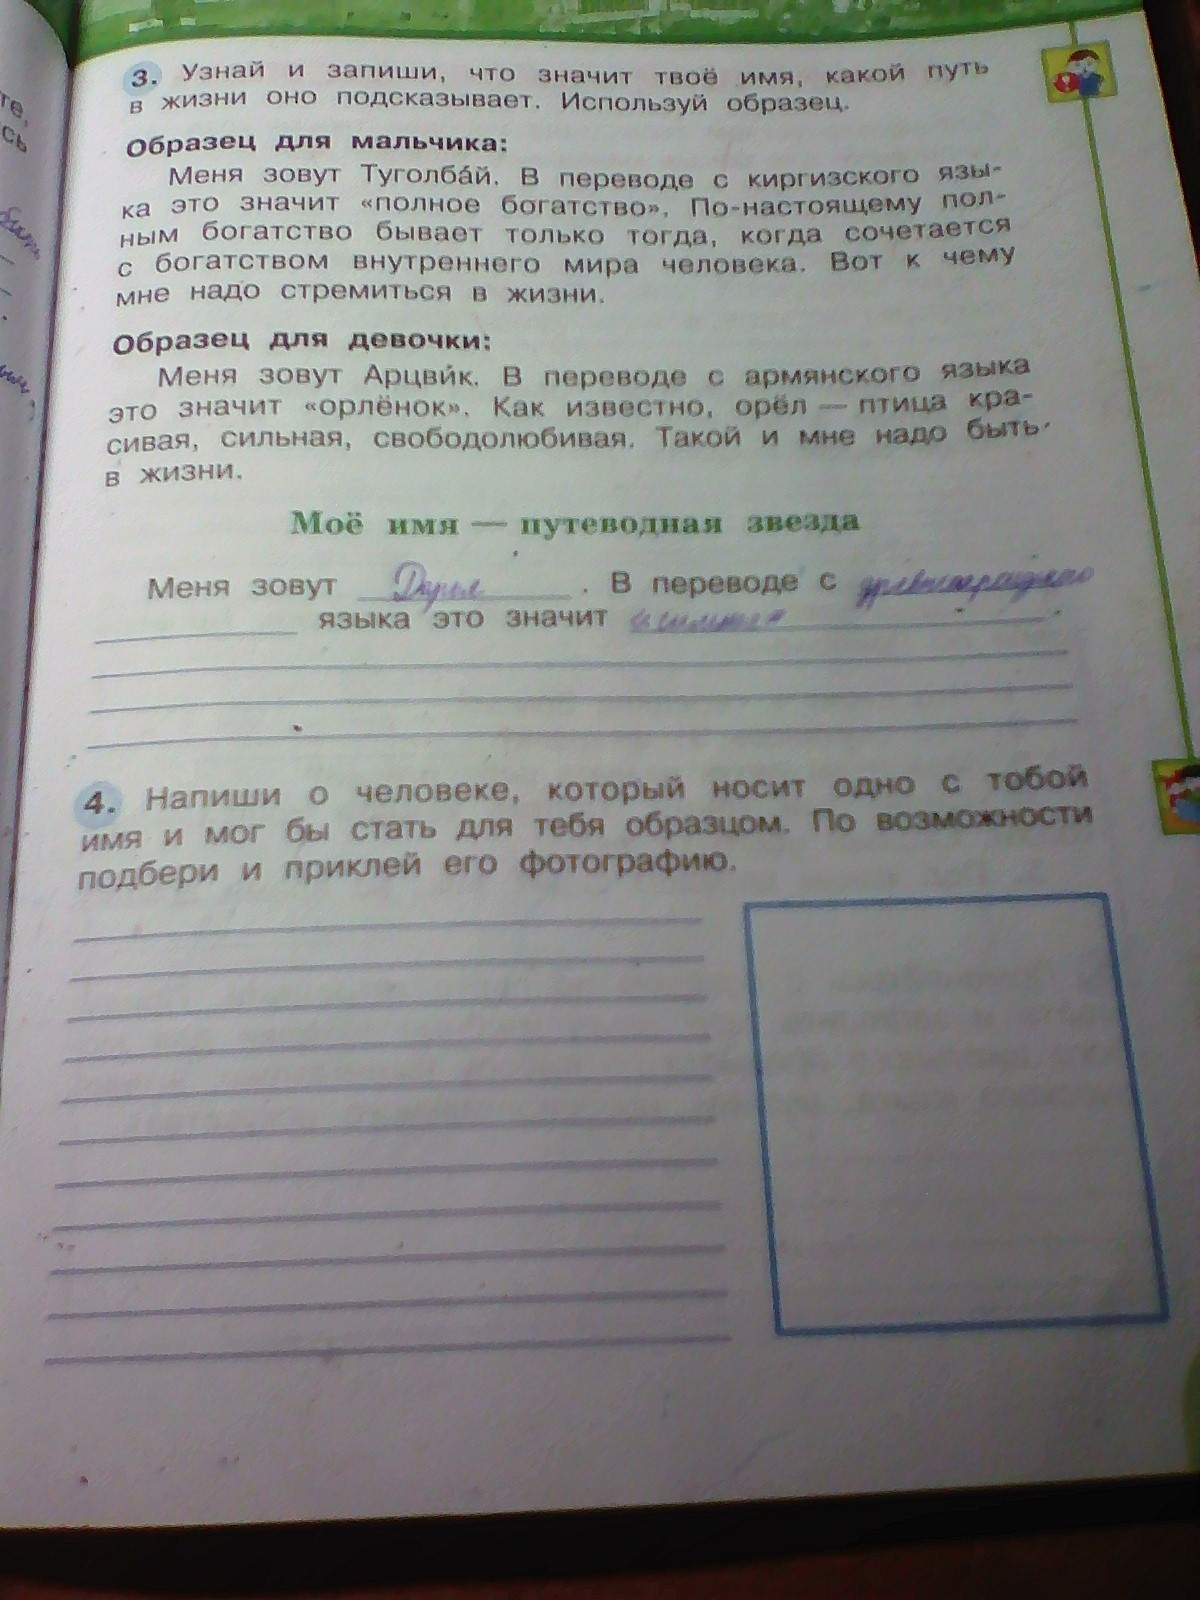 3. Узнай и запиши, что значит твоё имя, какой путь
в жизни оно подсказывает. Используй образец.
Образец для мальчика:
Меня зовут Туголба́й. В переводе с киргизского язы-
ка это значит «полное богатство». По-настоящему пол-
ным богатство бывает только тогда, когда сочетается
с богатством внутреннего мира человека. Вот к чему
мне надо стремиться в жизни.
Образец для девочки:
Меня зовут Арцви́к. В переводе с армянского языка
это значит «орлёнок». Как известно, орёл — птица кра-
сивая, сильная, свободолюбивая. Такой и мне надо быть
в жизни.
Моё имя — путеводная звезда
Меня зовут Дарья. В переводе с
языка это значит
4. Напиши о человеке, который носит одно с тобой
имя и мог бы стать для тебя образцом. По возможности
подбери и приклей его фотографию.